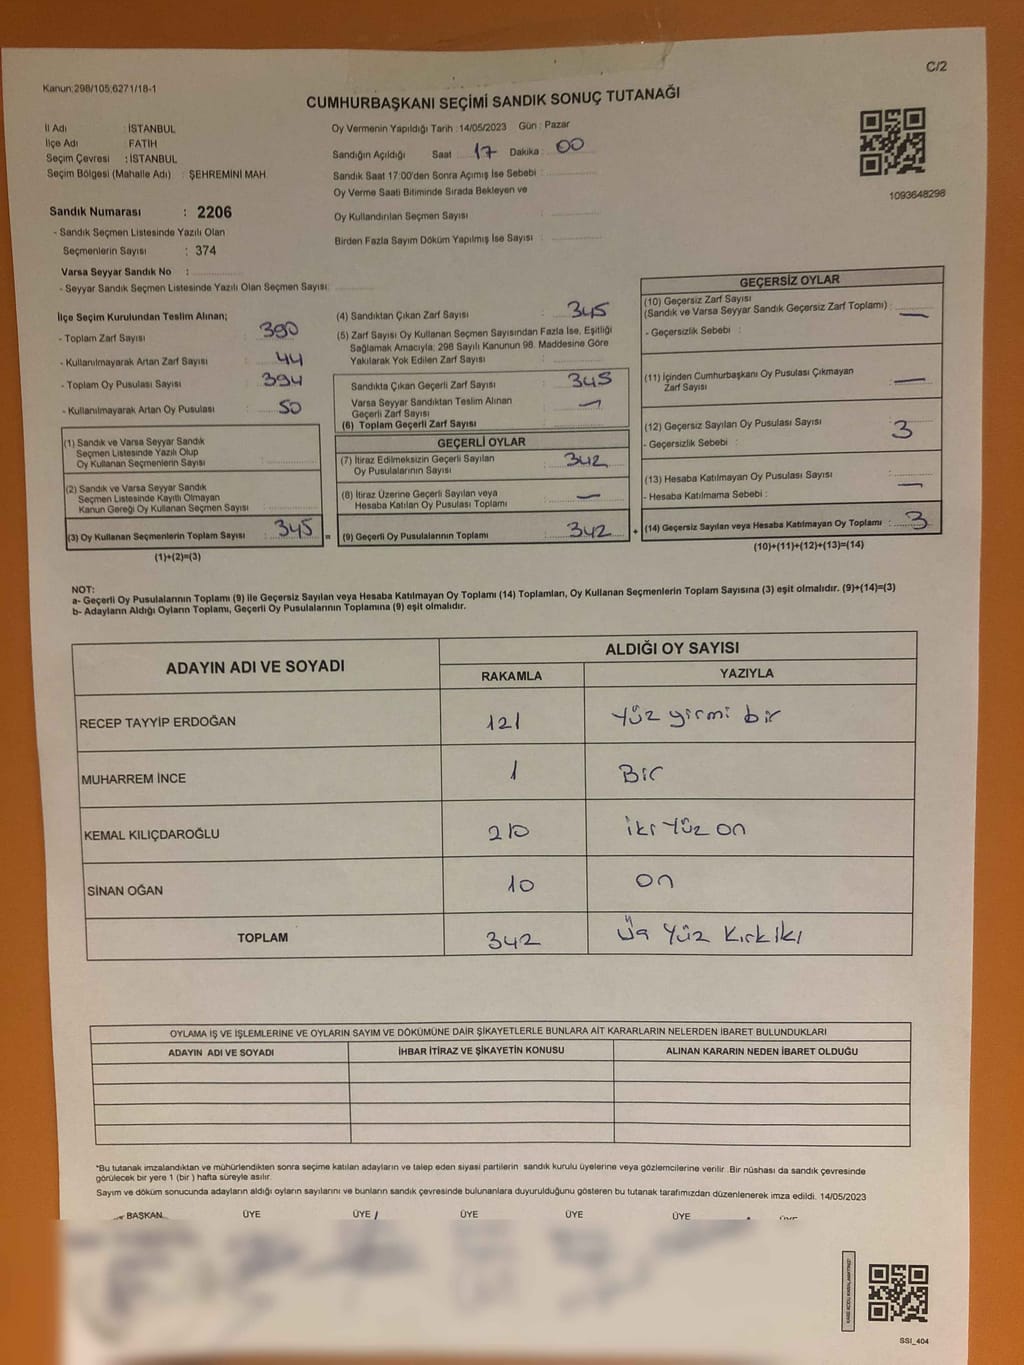 C/2
Kanun:298/105,6271/18-1
CUMHURBAŞKANI SEÇİMİ SANDIK SONUÇ TUTANAĞI
İl Adı : İSTANBUL
İlçe Adı : FATİH
Seçim Çevresi : İSTANBUL
Seçim Bölgesi (Mahalle Adı) : ŞEHREMİNİ MAH.
Oy Vermenin Yapıldığı Tarih :14/05/2023 Gün : Pazar
Sandığın Açıldığı Saat : 17 Dakika : 00
Sandık Saat 17:00'den Sonra Açılmış İse Sebebi :
Oy Verme Saati Bitiminde Sırada Bekleyen ve
Oy Kullandırılan Seçmen Sayısı :
Birden Fazla Sayım Döküm Yapılmış İse Sayısı :
1093648298
Sandık Numarası : 2206
- Sandık Seçmen Listesinde Yazılı Olan
Seçmenlerin Sayısı : 374
Varsa Seyyar Sandık No :
- Seyyar Sandık Seçmen Listesinde Yazılı Olan Seçmen Sayısı:
İlçe Seçim Kurulundan Teslim Alınan;
- Toplam Zarf Sayısı : 390
- Kullanılmayarak Artan Zarf Sayısı : 44
- Toplam Oy Pusulası Sayısı : 394
- Kullanılmayarak Artan Oy Pusulası : 50
(1) Sandık ve Varsa Seyyar Sandık
Seçmen Listesinde Yazılı Olup
Oy Kullanan Seçmenlerin Sayısı :
(2) Sandık ve Varsa Seyyar Sandık
Seçmen Listesinde Kayıtlı Olmayan
Kanun Gereği Oy Kullanan Seçmen Sayısı :
(3) Oy Kullanan Seçmenlerin Toplam Sayısı : 345 =
(1)+(2)=(3)
(4) Sandıktan Çıkan Zarf Sayısı : 345
(5) Zarf Sayısı Oy Kullanan Seçmen Sayısından Fazla İse, Eşitliği
Sağlamak Amacıyla; 298 Sayılı Kanunun 98. Maddesine Göre
Yakılarak Yok Edilen Zarf Sayısı :
Sandıkta Çıkan Geçerli Zarf Sayısı : 345
Varsa Seyyar Sandıktan Teslim Alınan
Geçerli Zarf Sayısı : —
(6) Toplam Geçerli Zarf Sayısı :
GEÇERLİ OYLAR
(7) İtiraz Edilmeksizin Geçerli Sayılan
Oy Pusulalarının Sayısı : 342
(8) İtiraz Üzerine Geçerli Sayılan veya
Hesaba Katılan Oy Pusulası Toplamı : —
(9) Geçerli Oy Pusulalarının Toplamı : 342 +
GEÇERSİZ OYLAR
(10) Geçersiz Zarf Sayısı
(Sandık ve Varsa Seyyar Sandık Geçersiz Zarf Toplamı) : —
- Geçersizlik Sebebi :
(11) İçinden Cumhurbaşkanı Oy Pusulası Çıkmayan
Zarf Sayısı : —
(12) Geçersiz Sayılan Oy Pusulası Sayısı : 3
- Geçersizlik Sebebi :
(13) Hesaba Katılmayan Oy Pusulası Sayısı : —
- Hesaba Katılmama Sebebi :
(14) Geçersiz Sayılan veya Hesaba Katılmayan Oy Toplamı : 3
(10)+(11)+(12)+(13)=(14)
NOT:
a- Geçerli Oy Pusulalarının Toplamı (9) ile Geçersiz Sayılan veya Hesaba Katılmayan Oy Toplamı (14) Toplamları, Oy Kullanan Seçmenlerin Toplam Sayısına (3) eşit olmalıdır. (9)+(14)=(3)
b- Adayların Aldığı Oyların Toplamı, Geçerli Oy Pusulalarının Toplamına (9) eşit olmalıdır.
ADAYIN ADI VE SOYADI
ALDIĞI OY SAYISI
RAKAMLA YAZIYLA
RECEP TAYYİP ERDOĞAN 121 Yüz yirmi bir
MUHARREM İNCE 1 Bir
KEMAL KILIÇDAROĞLU 210 iki Yüz on
SİNAN OĞAN 10 on
TOPLAM 342 Üç Yüz Kırkiki
OYLAMA İŞ VE İŞLEMLERİNE VE OYLARIN SAYIM VE DÖKÜMÜNE DAİR ŞİKAYETLERLE BUNLARA AİT KARARLARIN NELERDEN İBARET BULUNDUKLARI
ADAYIN ADI VE SOYADI İHBAR İTİRAZ VE ŞİKAYETİN KONUSU ALINAN KARARIN NEDEN İBARET OLDUĞU
*Bu tutanak imzalandıktan ve mühürlendikten sonra seçime katılan adayların ve talep eden siyasi partilerin sandık kurulu üyelerine veya gözlemcilerine verilir. Bir nüshası da sandık çevresinde
görülecek bir yere 1 (bir ) hafta süreyle asılır.
Sayım ve döküm sonucunda adayların aldığı oyların sayılarını ve bunların sandık çevresinde bulunanlara duyurulduğunu gösteren bu tutanak tarafımızdan düzenlenerek imza edildi. 14/05/2023
BAŞKAN ÜYE ÜYE ÜYE ÜYE ÜYE ÜYE
SSI_404